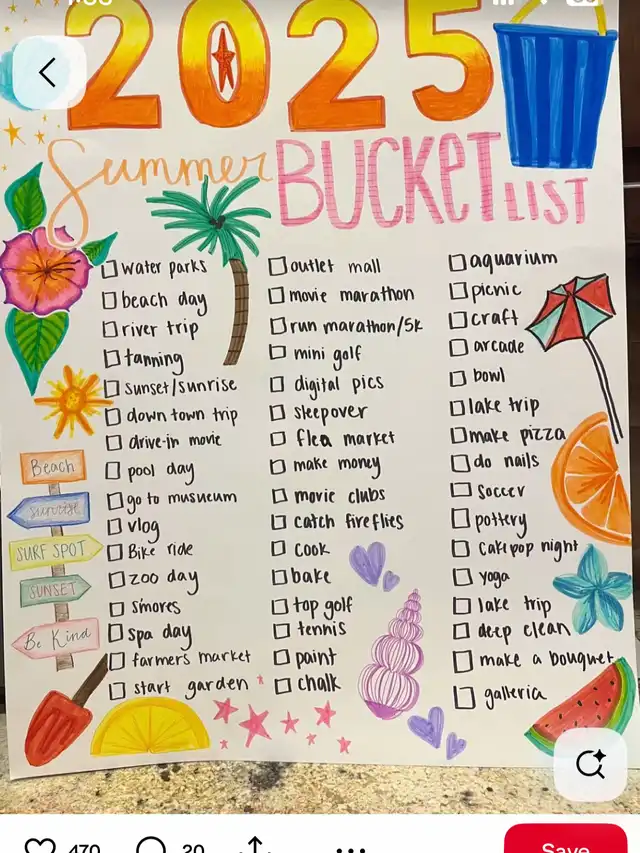 2025
Summer BUCKET LIST
water parks
beach day
river trip
tanning
sunset/sunrise
down town trip
drive-in movie
pool day
go to musueum
vlog
Bike ride
zoo day
s'mores
spa day
farmers market
start garden
outlet mall
movie marathon
run marathon/5k
mini golf
digital pics
sleepover
flea market
make money
movie clubs
catch fireflies
cook
bake
top golf
tennis
paint
chalk
aquarium
picnic
craft
arcade
bowl
lake trip
make pizza
do nails
soccer
pottery
cakepop night
yoga
lake trip
deep clean
make a bouquet
galleria
Beach
sunrise
SURF SPOT
SUNSET
Be Kind
470
20
Save